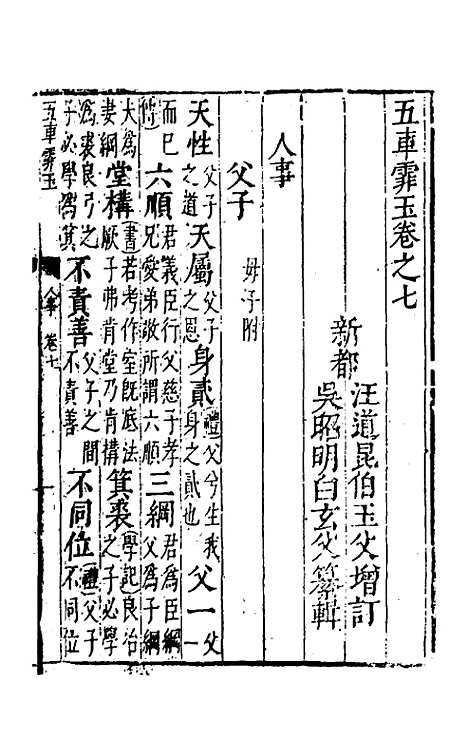 五車霏玉卷之七
新都
汪道昆伯玉父增訂
吳昭明白玄父纂輯
人事
父子 母子附
天性父子之道天屬父子之恩身貳禮父兮生我身之貳也父一父一
而已傳六順君義臣行父慈子孝兄愛弟敬所謂六順三綱君為臣綱父為子綱
大為妻綱堂構書若考作室既底法厥子弗肯堂乃肯構箕裘學記良冶之子必學
為裘良弓之子必學為箕不責善父子之間不責善不同位禮父子不同位
五車霏玉 人事 卷七